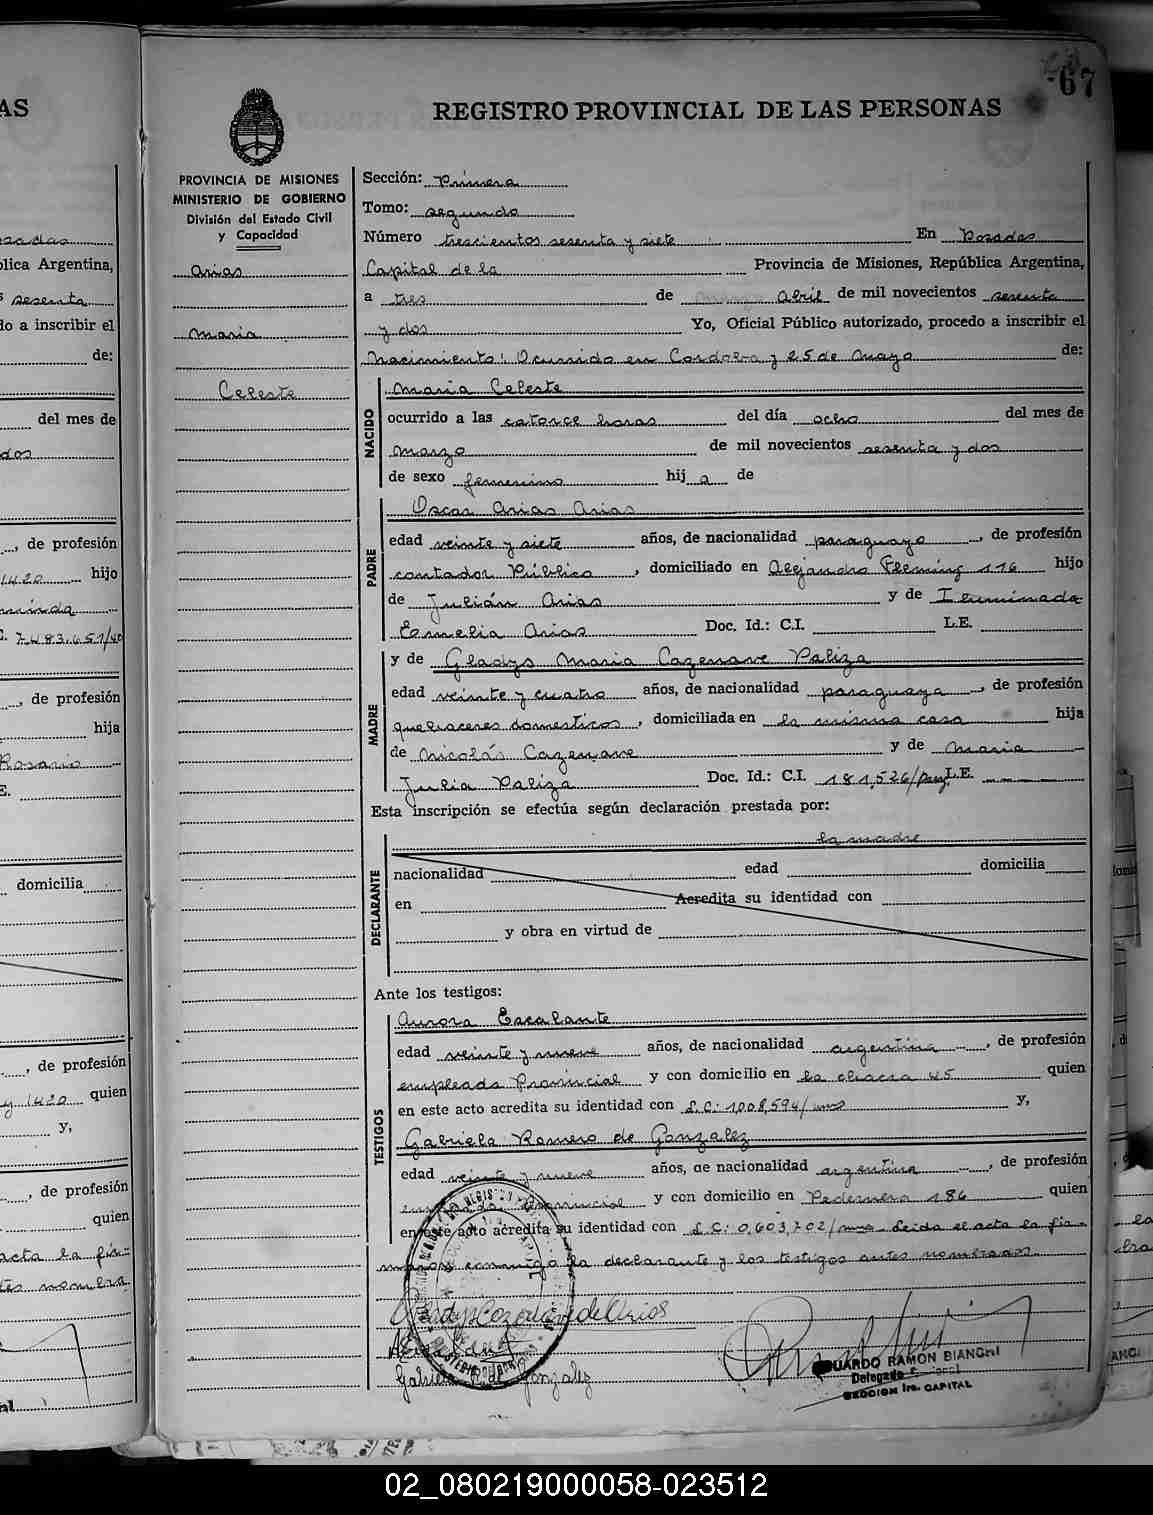 AS
67
REGISTRO PROVINCIAL DE LAS PERSONAS
PROVINCIA DE MISIONES
MINISTERIO DE GOBIERNO
División del Estado Civil
y Capacidad
Arias
Maria
Celeste
Sección: Primera
Tomo: segundo
Número trescientos sesenta y siete En Posadas
Capital de la Provincia de Misiones, República Argentina,
a tres de Abril de mil novecientos sesenta
y dos Yo, Oficial Público autorizado, procedo a inscribir el
Nacimiento: Ocurrido en Cordoba y 25 de Mayo de:
NACIDO
Maria Celeste
ocurrido a las catorce horas del día ocho del mes de
marzo de mil novecientos sesenta y dos
de sexo femenino hij a de
PADRE
Oscar Arias Arias
edad veinte y siete años, de nacionalidad paraguayo, de profesión
contador Público, domiciliado en Alejandro Fleming 116 hijo
de Julián Arias y de Iluminada
Esmelia Arias Doc. Id.: C.I. L.E.
MADRE
y de Gladys Maria Cazenave Paliza
edad veinte y cuatro años, de nacionalidad paraguaya, de profesión
quehaceres domesticos, domiciliada en la misma casa hija
de Nicolás Cazenave y de Maria
Julia Paliza Doc. Id.: C.I. 181,526/Parg. L.E.
Esta inscripción se efectúa según declaración prestada por:
DECLARANTE
la madre
nacionalidad edad domicilia
en Acredita su identidad con
y obra en virtud de
Ante los testigos:
TESTIGOS
Aurora Escalante
edad veinte y nueve años, de nacionalidad argentina, de profesión
empleada Provincial y con domicilio en la chacra 45 quien
en este acto acredita su identidad con L.C: 1.008,594/mns y,
Gabriela Romero de Gonzalez
edad veinte y nueve años, de nacionalidad argentina, de profesión
empleada Provincial y con domicilio en Pedernera 186 quien
en este acto acredita su identidad con L.C: 0,603,702/mns Leida el acta la fir-
maron conmigo la declarante y los testigos antes nombrados.
Gladys Cazenave de Arias
Gabriela R de Gonzalez
EDUARDO RAMON BIANCHI
Delegado
SECCION 1ra. CAPITAL
02_080219000058-023512